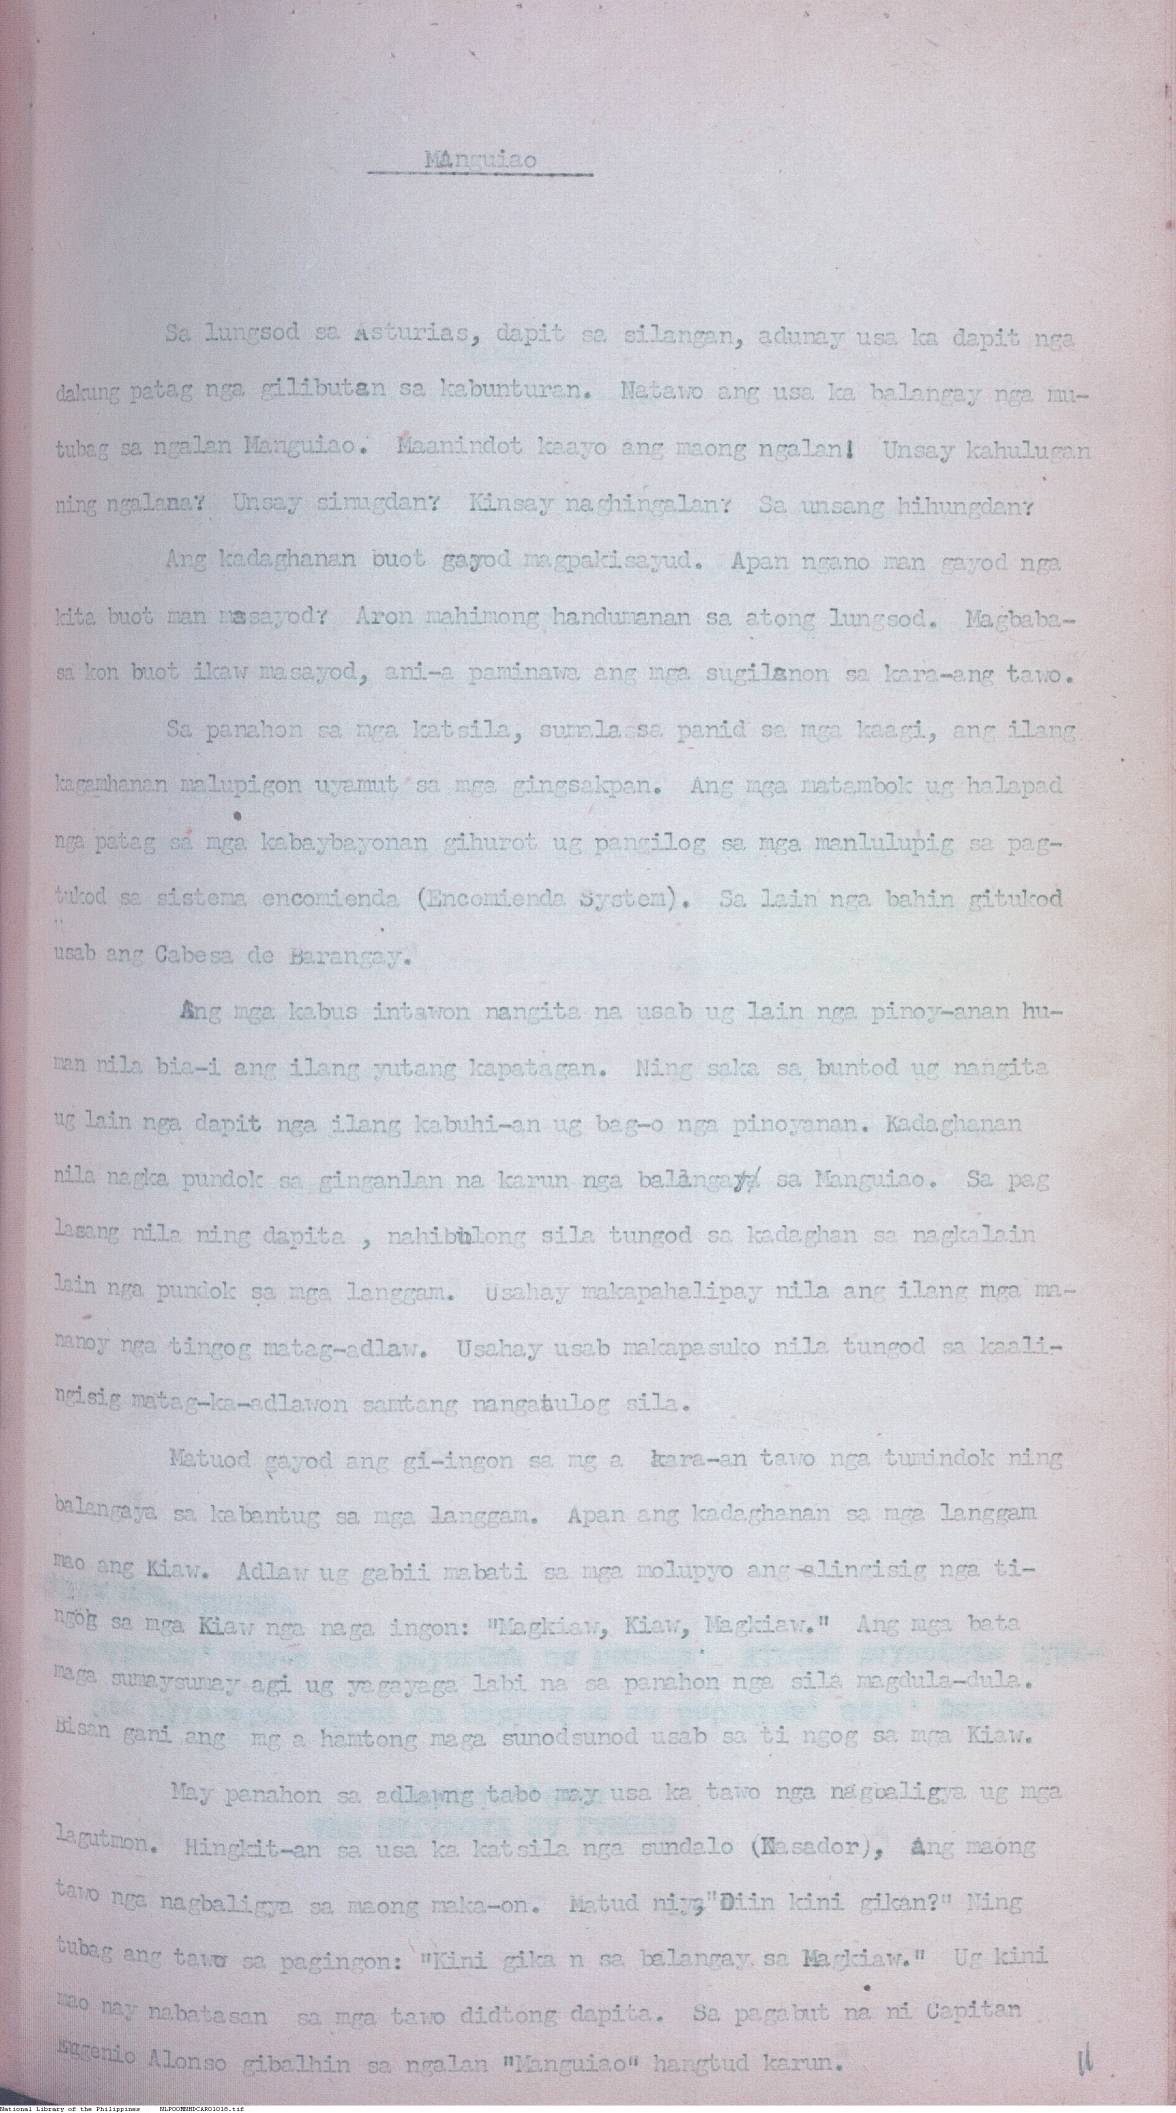 Manguiao
Sa lungsod sa Asturias, dapit sa silangan, adunay usa ka dapit nga
dakung patag nga gilibutan sa kabunturan. Natawo ang usa ka balangay nga mu-
tubag sa ngalan Manguiao. Maanindot kaayo ang maong ngalan! Unsay kahulugan
ning ngalana? Unsay sinugdan? Kinsay naghingalan? Sa unsang hihungdan?
Ang kadaghanan buot gayod magpakisayud. Apan ngano man gayod nga
kita buot man masayod? Aron mahimong handumanan sa atong lungsod. Magbaba-
sa kon buot ikaw masayod, ani-a paminawa ang mga sugilanon sa kara-ang tawo.
Sa panahon sa mga katsila, sumala sa panid sa mga kaagi, ang ilang
kagamhanan malupigon uyamut sa mga gingsakpan. Ang mga matambok ug halapad
nga patag sa mga kabaybayonan gihurot ug pangilog sa mga manlulupig sa pag-
tukod sa sistema encomienda (Encomienda System). Sa lain nga bahin gitukod
usab ang Cabesa de Barangay.
Ang mga kabus intawon nangita na usab ug lain nga pinoy-anan hu-
man nila bia-i ang ilang yutang kapatagan. Ning saka sa buntod ug nangita
ug lain nga dapit nga ilang kabuhi-an ug bag-o nga pinoyanan. Kadaghanan
nila nagka pundok sa ginganlan na karun nga balangay sa Manguiao. Sa pag
lasang nila ning dapita , nahibulong sila tungod sa kadaghan sa nagkalain
lain nga pundok sa mga langgam. Usahay makapahalipay nila ang ilang mga ma-
nanoy nga tingog matag-adlaw. Usahay usab makapasuko nila tungod sa kaali-
ngisig matag-ka-adlawon samtang nangatulog sila.
Matuod gayod ang gi-ingon sa mg a kara-an tawo nga tumindok ning
balangaya sa kabantug sa mga langgam. Apan ang kadaghanan sa mga langgam
mao ang Kiaw. Adlaw ug gabii mabati sa mga molupyo ang alingisig nga ti-
ngog sa mga Kiaw nga naga ingon: "Magkiaw, Kiaw, Magkiaw." Ang mga bata
maga sumaysumay agi ug yagayaga labi na sa panahon nga sila magdula-dula.
Bisan gani ang mg a hamtong maga sunodsunod usab sa ti ngog sa mga Kiaw.
May panahon sa adlawng tabo may usa ka tawo nga nagbaligya ug mga
lagutmon. Hingkit-an sa usa ka katsila nga sundalo (Kasador), Ang maong
tawo nga nagbaligya sa maong maka-on. Matud niya, "Diin kini gikan?" Ning
tubag ang tawo sa pagingon: "Kini gika n sa balangay sa Magkiaw." Ug kini
mao nay nabatasan sa mga tawo didtong dapita. Sa pagabut na ni Capitan
Eugenio Alonso gibalhin sa ngalan "Manguiao" hangtud karun.
National Library of the Philippines